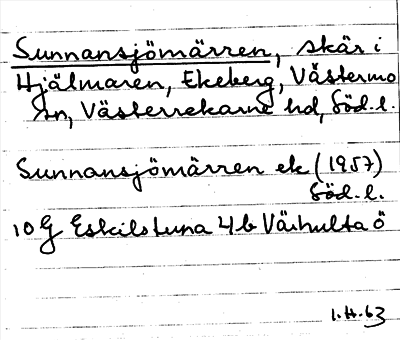 Sunnansjömärren, skär i
Hjälmaren, Ekeberg, Västermo
sn, Västerrekarne hd, Söd.l.
Sunnansjömärren ek (1957)
Söd.l.
10 G Eskilstuna 4b Väihulta ö
1.H.63